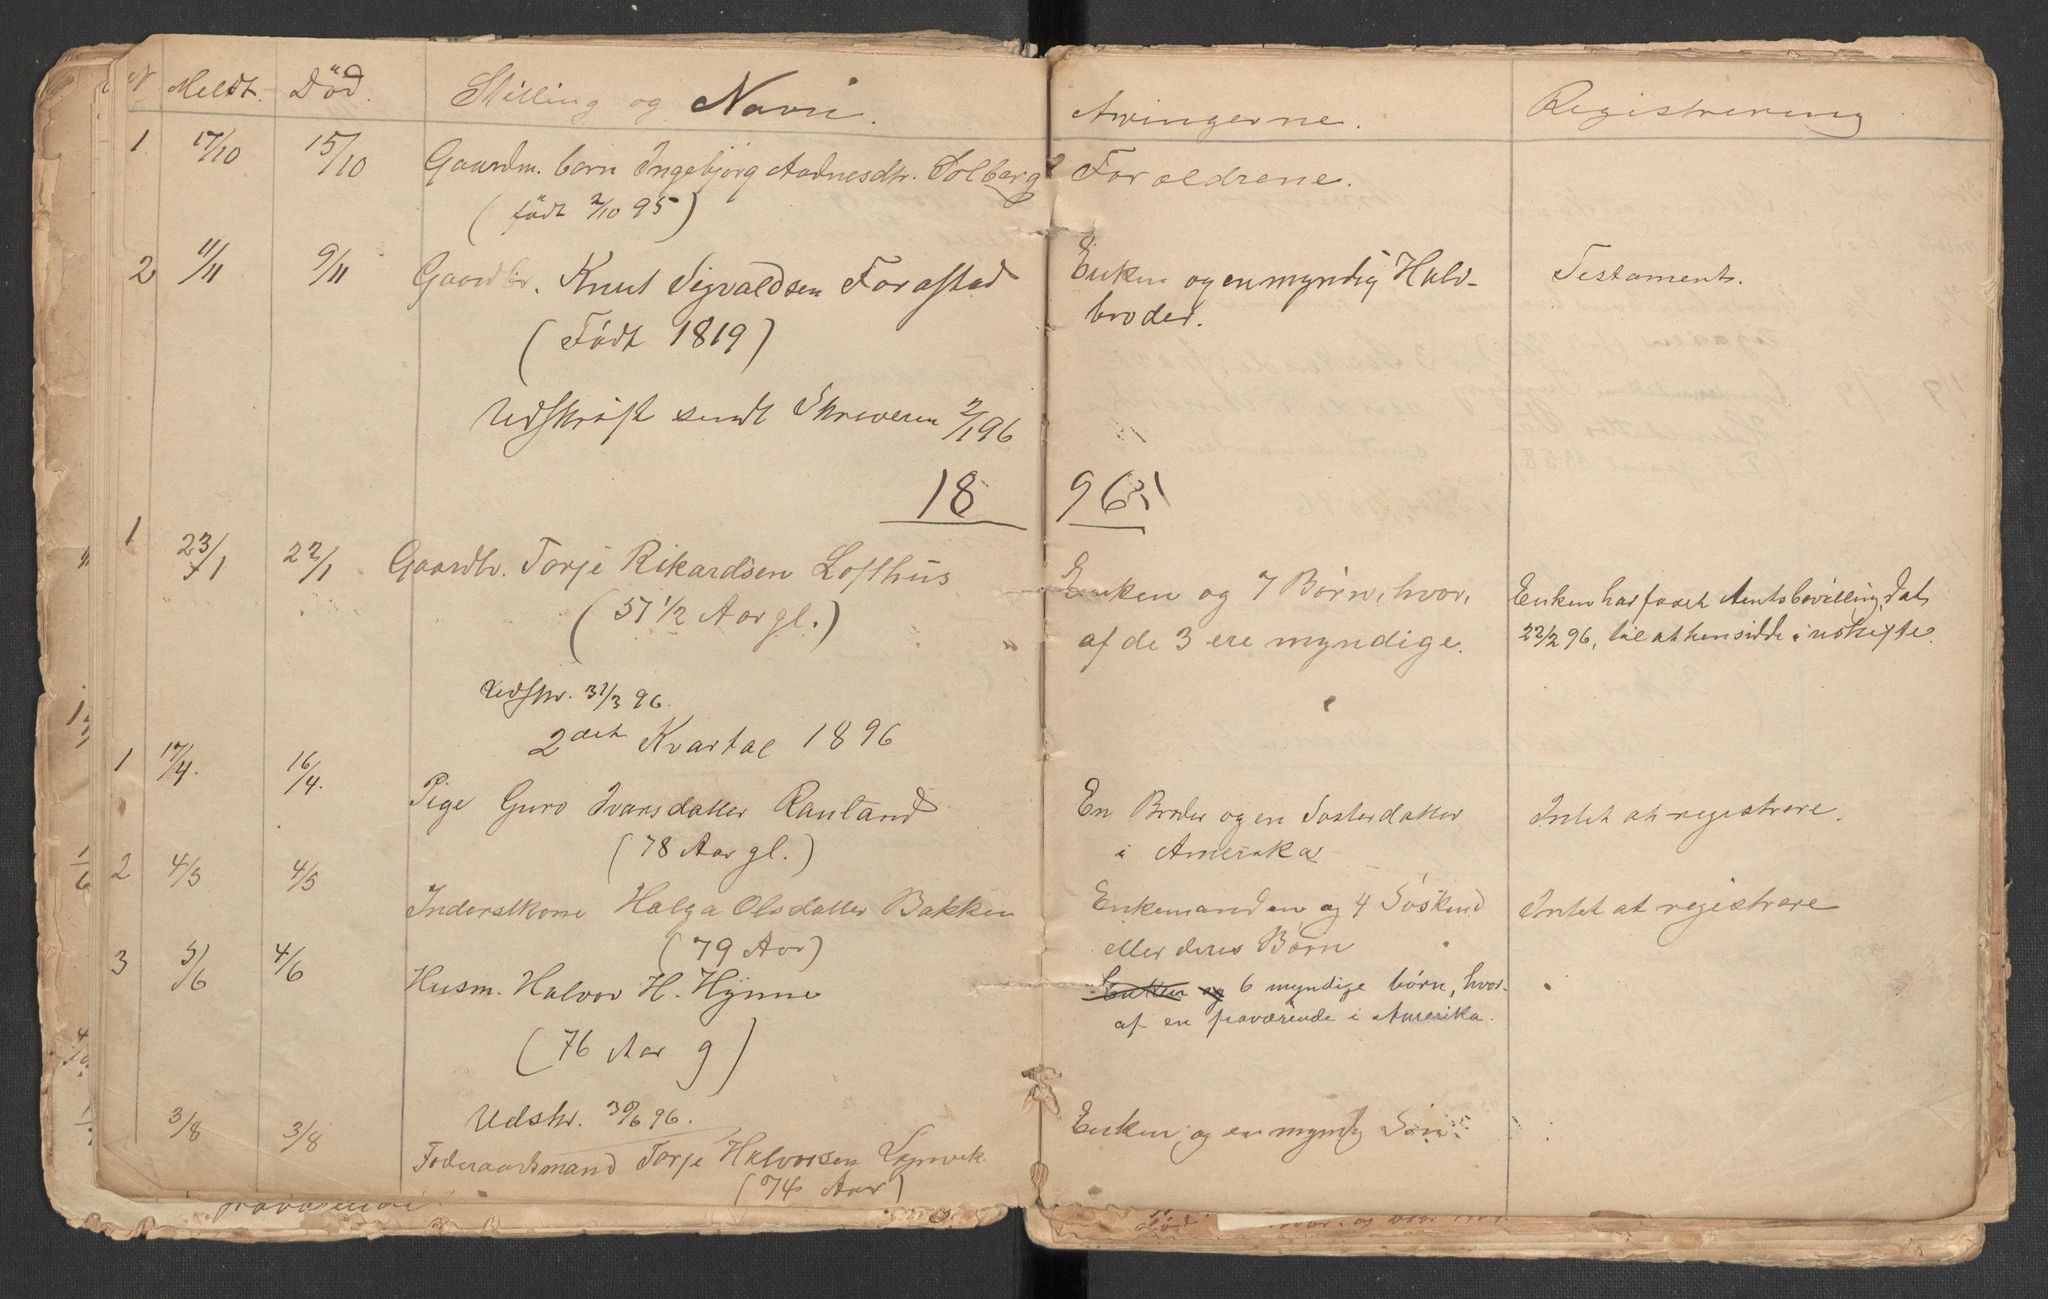 N Meldt. Död. Stilling og Navn. Arvingerne. Registrering
1 17/10 15/10 Gaardm. barn Ingebjörg Aadnesdtr. Solberg Forældrene.
( født 2/10 95 )
2 11/11 9/11 Gaardbr. Knut Sigvaldsen Forastad Enken og en myndig Halv- Testament.
(Født 1819) broder.
Udskrift sendt Skriveren 2/1 96
18 96.
1 23/1 22/1 Gaardbr. Torje Rikardsen Lofthus Enken og 7 Børn, hvor, Enken har faaet Amtsbevilling, dat,
(57 1/2 Aar gl.) af de 3 ere myndige. 22/2 96, til at hensidde i uskifte.
Udskr. 31/3 96.
2det Kvartal 1896
1 17/4. 16/4. Pige Guro Ivarsdatter Rauland En Broder og en Søsterdatter Intet at registrere.
(78 Aar gl.) i Amerika
2 4/5 4/5 Inderstkone Helga Olsdatter Bakken Enkemanden og 4 Søskend Intet at registrere
(79 Aar) eller deres Børn
3 5/6 4/6 Husm. Halvor H. Hynne Enken og 6 myndige børn, hvor-
(76 Aar g) af en fraværende i Amerika.
Udskr. 30/6 96.
3/8 3/8 Føderaadsmand Torje Halvorsen Enken og en myndig Søn
(74 Aar)